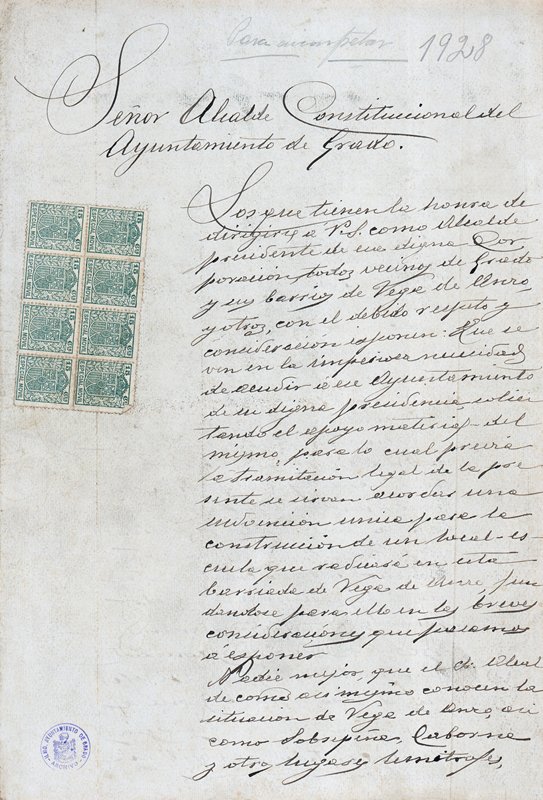 Para cumplimentar 1928
Señor Alcalde Constitucional del
Ayuntamiento de Grado.
Los que tienen la honra de
dirigirse a V.S. como Alcalde
presidente de esa digna Cor
poración, todos vecinos de Grado
y su barrio de Vega de Anzo
y otros, con el debido respeto y
consideración esponen: Que se
ven en la imperiosa necesidad
de acudir a ese Ayuntamiento
de su digna presidencia solici
tando el apoyo material del
mismo, para lo cual previa
la tramitación legal de la pre
sente se sirvan acordar una
subvención unica para la
construcción de un local-es
cuela que radicará en esta
barriada de Vega de Anzo fun
dandose para ello en las breves
consideraciones que pasamos
a esponer
Nadie mejor, que el Sr. Alcal
de como asi mismo conocen la
situación de Vega de Anzo, asi
como Sobrepeña, Caborna
y otros lugares limitrofes,
AYUNTAMIENTO DE GRADO
ARCHIVO